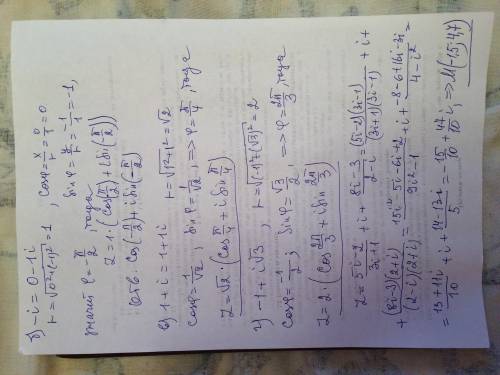 б) -i = 0 - 1i
r = √(0²+(-1)²) = 1, cosφ = x/r = 0/1 = 0
sinφ = y/r = -1/1 = -1,
значит φ = -π/2, тогда
z = 1·(cos(-π/2) + i sin(-π/2))
Отв. cos(-π/2) + i sin(-π/2)
в) 1+i = 1+1i r = √(1²+1²) = √2
cosφ = 1/√2, sinφ = 1/√2, => φ = π/4, тогда
z = √2·(cos π/4 + i sin π/4)
г) -1+i√3, r = √((-1)²+(√3)²) = 2
cosφ = -1/2, sinφ = √3/2, => φ = 2π/3, тогда
z = 2·(cos 2π/3 + i sin 2π/3)
z = (5i-2)/(3i+1) + i + (8i-3)/(2-i) = (5i-2)(3i-1)/(3i+1)(3i-1) + i +
+ (8i-3)(2+i)/(2-i)(2+i) = (15i²-5i-6i+2)/(9i²-1) + i + (-8-6+16i-3i)/(4-i²) =
= (13+11i)/10 + i + (14-13i)/5 = -15/10 + 47/10 i, => M(-1,5; 4,7)